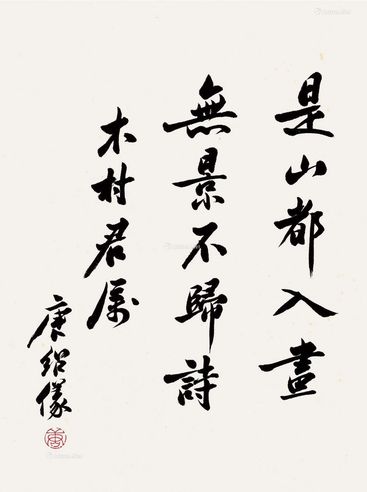 是山都入畫
無景不歸詩
木村君屬
唐紹儀